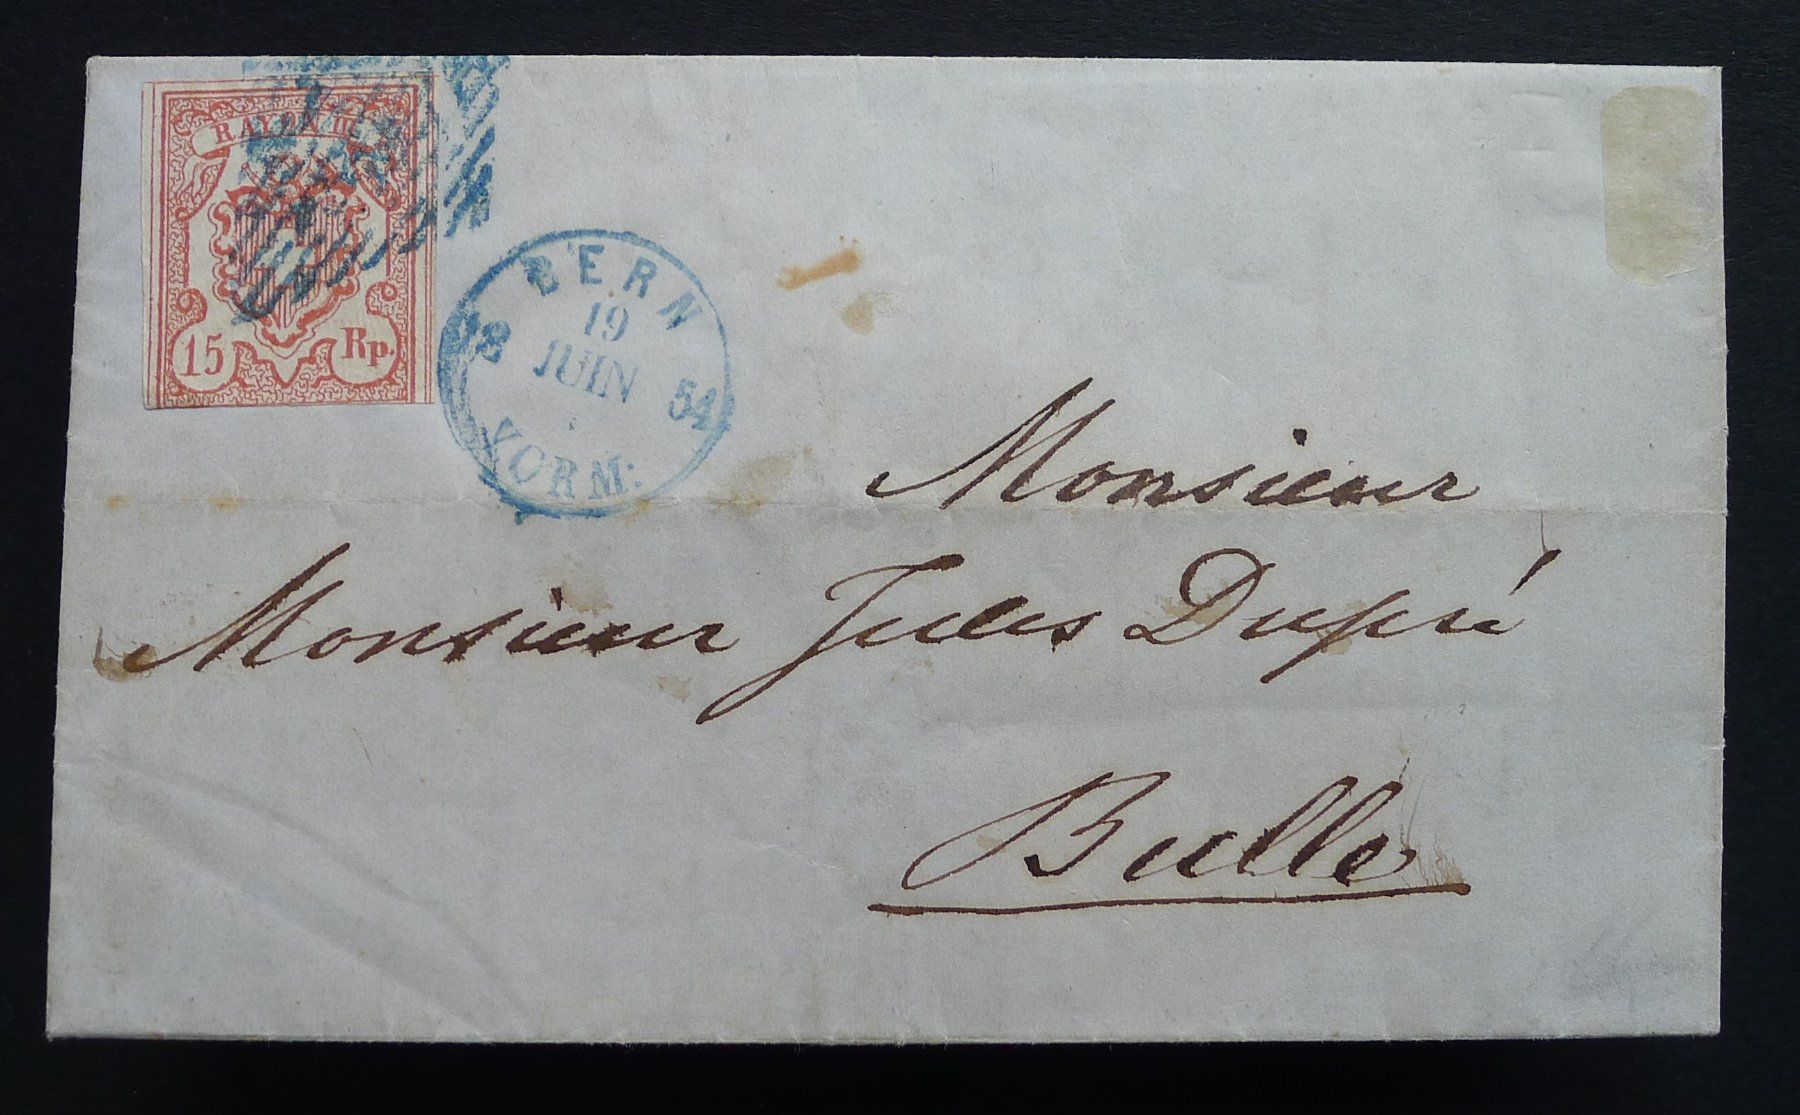 RAYON III
15 Rp.
BERN
19
JUIN
54
VORM:
Monsieur
Monsieur Jules Dupré
Bulle